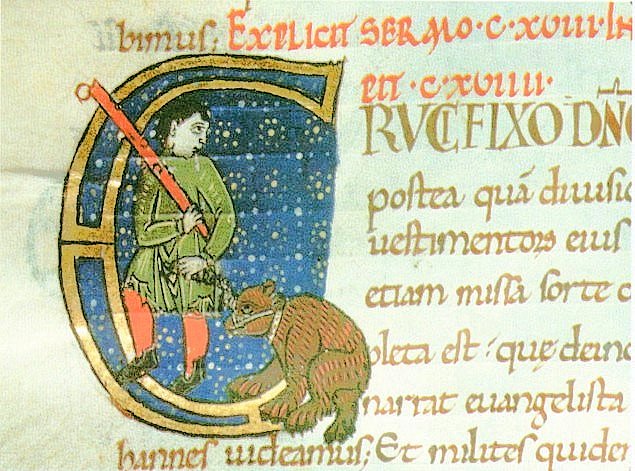 bimus; EXPLICIT SERMO·C·XVIII·IN
PIT·C·XVIIII·
CRVCIFIXO DNO
postea quā diuisio
uestimentorũ eius
etiam missā sorte c
pleta est: quę deinc
narrat euangelista
hannes uideamus; Et milites quider